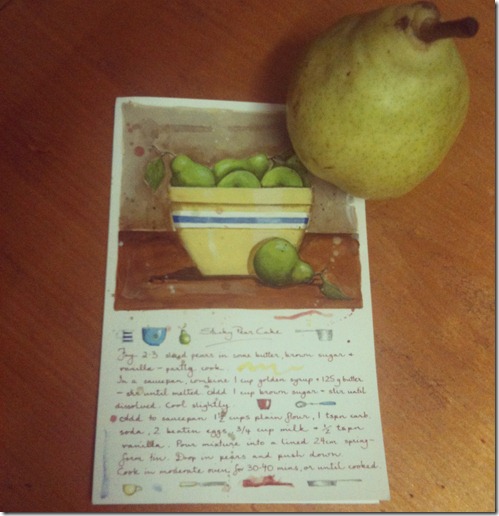 Sticky Pear Cake
Fry 2-3 sliced pears in some butter, brown sugar +
vanilla - partly cook.
In a saucepan, combine 1 cup golden syrup + 125g butter
- stir until melted. Add 1 cup brown sugar - stir until
dissolved. Cool slightly.
Add to saucepan 1½ cups plain flour, 1 tspn carb.
soda, 2 beaten eggs, 3/4 cup milk + ½ tspn
vanilla. Pour mixture into a lined 24cm spring-
form tin. Drop in pears and push down.
Cook in moderate oven for 30-40 mins, or until cooked.